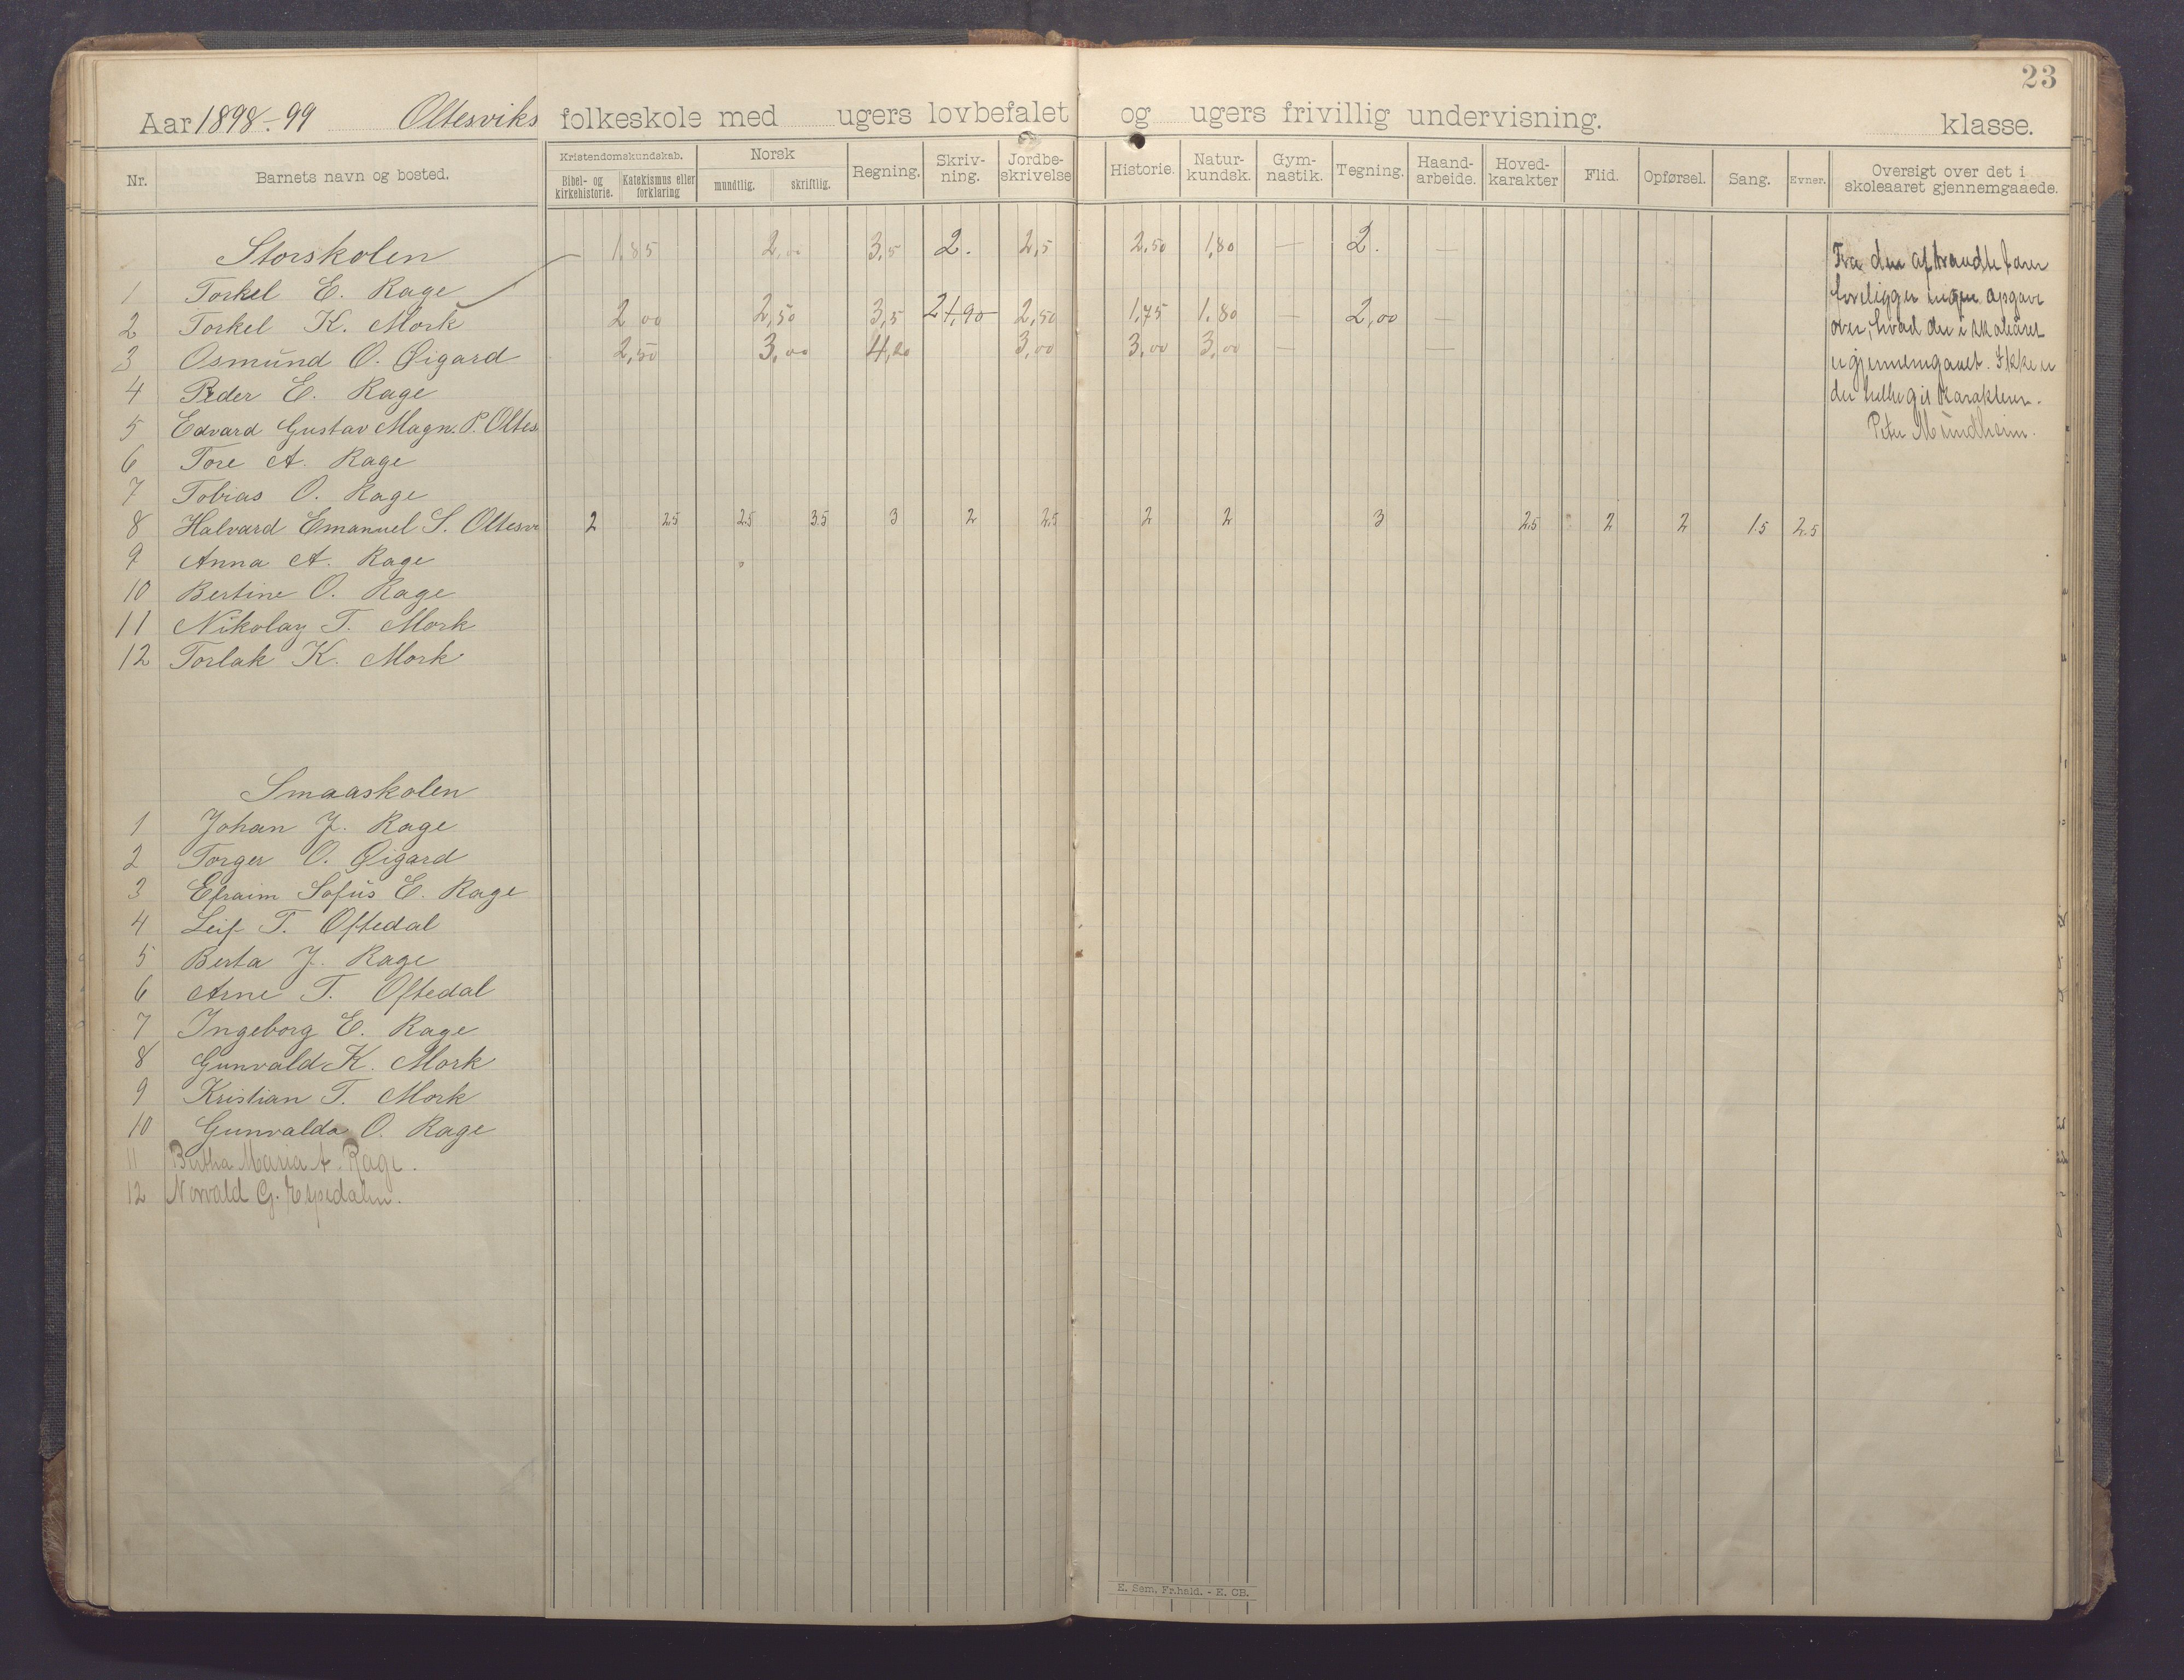 23
Aar 1898-99 Oltesviks folkeskole med ugers lovbefalet og ugers frivillig undervisning. klasse.
Nr. Barnets navn og bosted. Kristendomskundskab. Bibel- og kirkehistorie. Katekismus eller forklaring Norsk mundtlig. skriftlig. Regning. Skriv-ning. Jordbe-skrivelse Historie. Natur-kundsk. Gym-nastik. Tegning. Haand-arbeide. Hoved-karakter Flid. Opførsel. Sang. Evner. Oversigt over det i skoleaaret gjennemgaaede.
Storskolen 1,85 2,00 3,5 2. 2,5 2,50 1,80 — 2. —
1 Torkel E. Rage
2 Torkel K. Mork 2,00 2,50 3,5 2 1,90 2,50 1,75 1,80 — 2,00 —
3 Osmund O. Øigard 2,50 3,00 4,00 3,00 3,00 3,00 — —
4 Peder E. Rage
5 Edvard Gustav Magn. P. Oltes
6 Tore A. Rage
7 Tobias O. Rage
8 Halvard Emanuel S. Oltesv 2 2.5 2.5 3.5 3 2 2.5 2 2 3 2.5 2 2 1.5 2.5
9 Anna A. Rage
10 Bertine O. Rage
11 Nikolay T. Mork
12 Torlak K. Mork
Smaaskolen
1 Johan J. Rage
2 Torger O. Øigard
3 Efraim Sofus E. Rage
4 Leif T. Oftedal
5 Berta J. Rage
6 Arne T. Oftedal
7 Ingeborg E. Rage
8 Gunvald K. Mork
9 Kristian T. Mork
10 Gunvalda O. Rage
11 Bertha Maria A. Rage.
12 Norvald G. Espedalen.
Fra den aftraadte lærer
foreligger ingen opgave
over, hvad der i skoleåret
er gjennemgaaet. Ikke er
der heller git karakterer.
Peter Mundheim.
E. Sem, Fr.hald. - E. CB.